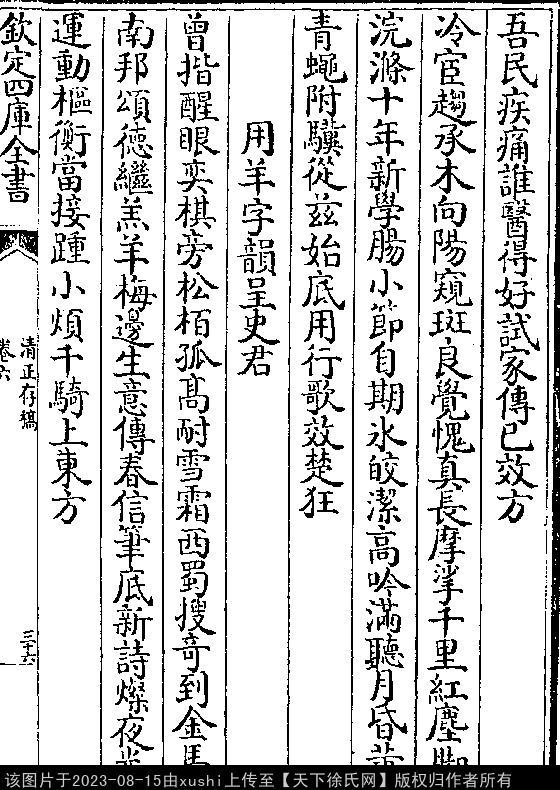 吾民疾痛誰醫得好試家傳已效方
冷宦趨承木向陽窺斑良覺愧真長摩挲千里紅塵脚
浣滌十年新學腸小節自期氷皎潔高吟滿聽月昏黄
青蠅附驥從兹始底用行歌效楚狂
用羊字韻呈史君
曾揩醒眼奕棋旁松栢孤髙耐雪霜西蜀搜奇到金馬
南邦頌德繼羔羊梅邊生意傳春信筆底新詩燦夜光
運動樞衡當接踵小煩千騎上東方
欽定四庫全書
清正存稿
卷六
三十六
该图片于2023-08-15由xushi上传至【天下徐氏网】版权归作者所有